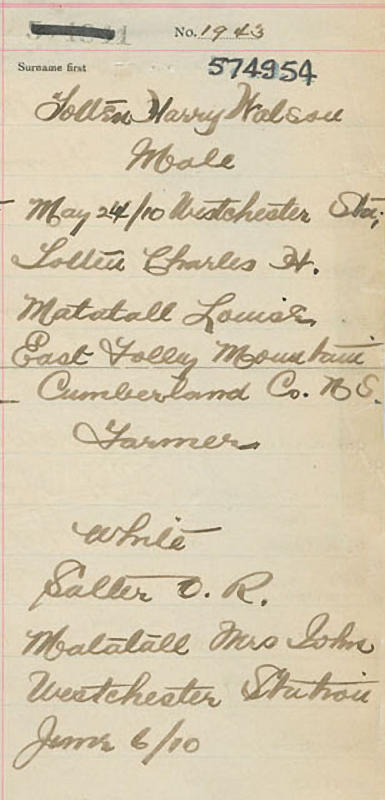 No. 1943
Surname first
574954
Totten Harry Watson
Male
May 24/10 Westchester Sta.
Totten Charles H.
Matatall Louise
East Folley Mountain
Cumberland Co. N.S.
Farmer
White
Salter O. R.
Matatall Mrs John
Westchester Station
June 6/10